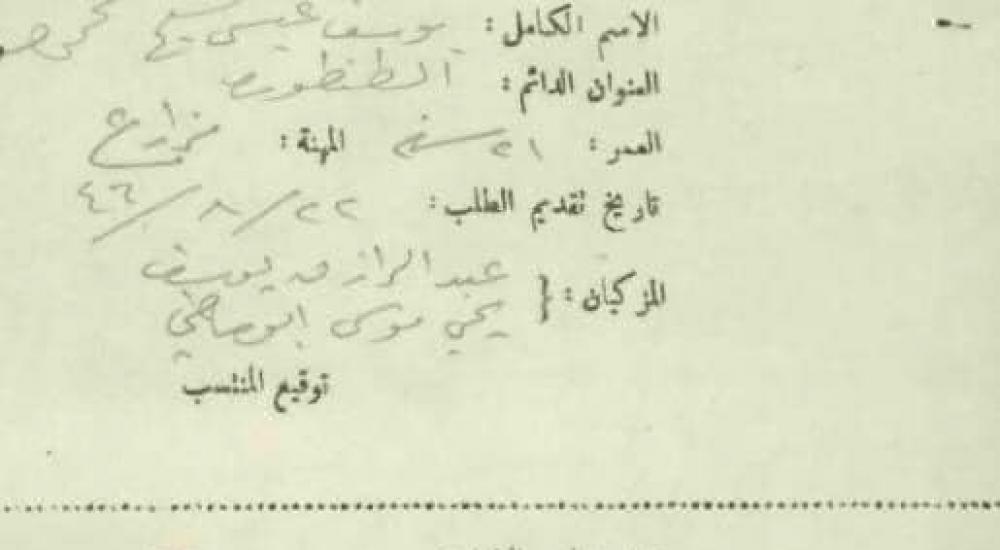 الاسم الكامل: يوسف عيسى
العنوان الدائم: الطنطوره
العمر: ٢١ سنه المهنة: مزارع
تاريخ تقديم الطلب: ٢٢/٨/٤٦
المزكيان: { عبد الرازق يوسف
يحيى موسى ابو صالح
توقيع المنتسب